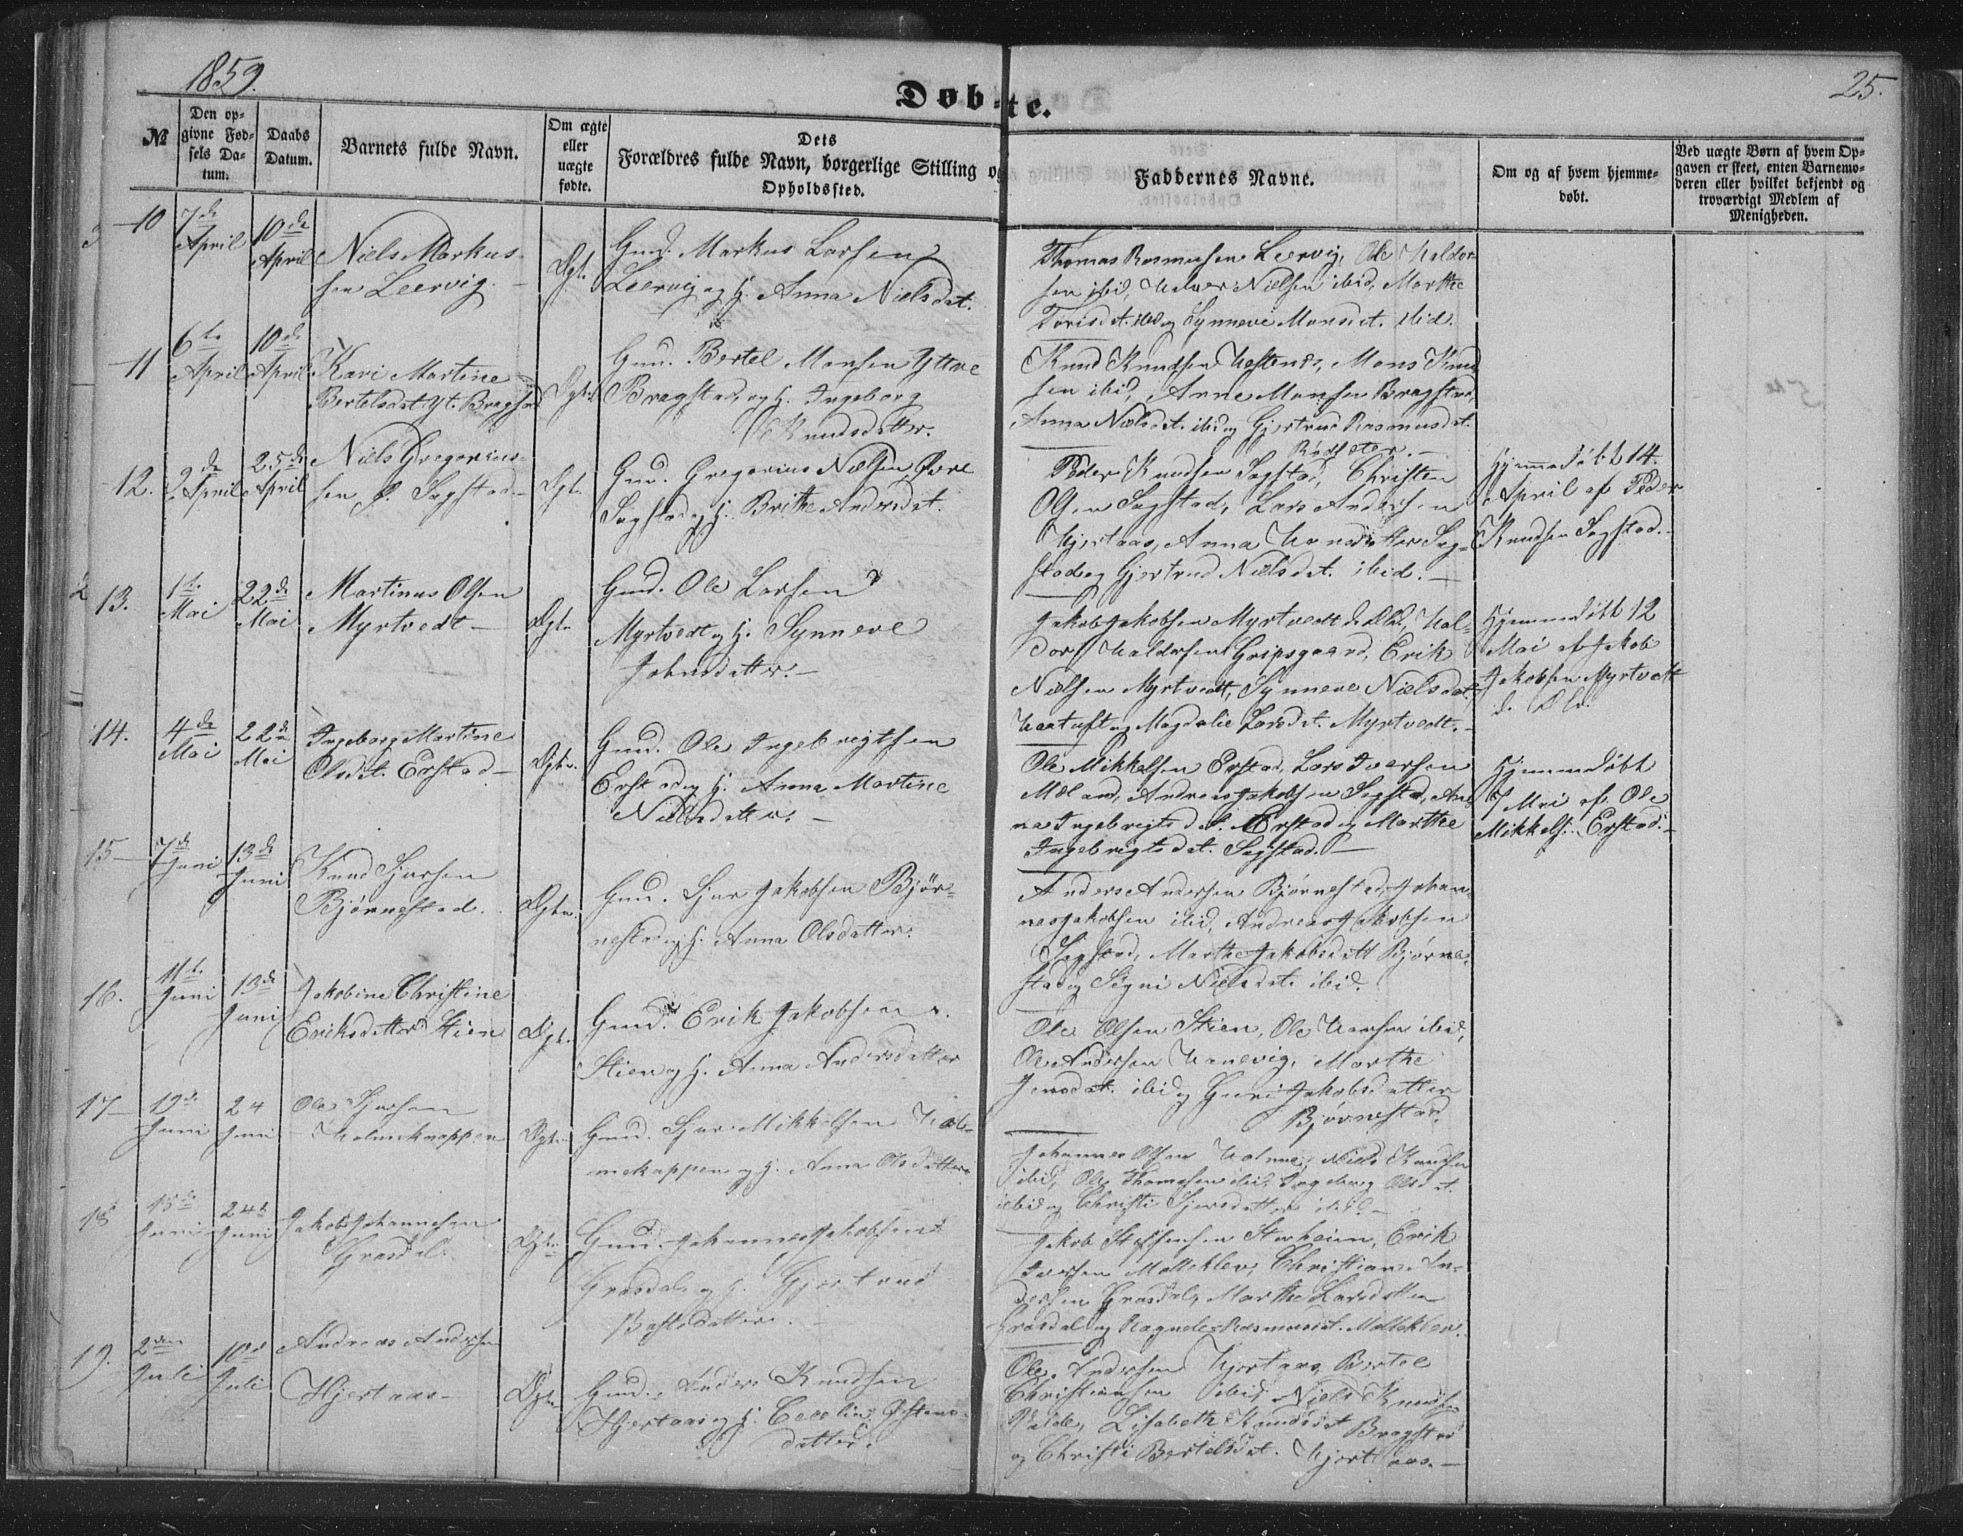 1859.
25.
Døb-te.
№
Den op-
givne Fød-
sels Da-
tum.
Daabs
Datum.
Barnets fulde Navn.
Om ægte
eller
uægte
fødte.
Dets
Forældres fulde Navn, borgerlige Stilling og
Opholdssted.
Faddernes Navne.
Om og af hvem hjemme-
døbt.
Ved uægte Børn af hvem Op-
gaven er skeet, enten Barnemo-
deren eller hvilket bekjendt og
troværdigt Medlem af
Menigheden.
10
7de
April
10de
April
Niels Markus-
sen Leervig.
Ægt.
Gmd. Markus Larsen
Leervig og H. Anna Nielsdat.
Thomas Rasmussen Leervig, Ole Haldor-
sen ibid, Halvor Nielsen ibid, Marthe
Torisdat. ibid og Synneve Monsdat. ibid.
11
6te
April
10de
April
Kari Martine
Bertelsdat. Yt. Bragstad
Ægt.
Gmd. Bertel Monsen Yttre
Bragstad og H. Ingeborg
Knudsdatter.
Knud Knudsen Hestenes, Mons Knud-
sen ibid, Arne Monsen Bragstad,
Anna Nielsdat. ibid og Gjertrud Rasmusdat.
Rødseter.
12.
2de
April
25de
April
Niels Gregorius-
sen Ø. Sagstad
Ægt.
Gmd. Gregorius Nielsen Øvre
Sagstad og H. Brithe Andersdat.
Peder Knudsen Sagstad, Christen
Olsen Sagstad, Lars Andersen
Hjertaas, Anna Hansdatter Sag-
stad og Gjertrud Nielsdat. ibid.
Hjemmedøbt 14.
April af Peder
Knudsen Sagstad.
13.
1te
Mai
22de
Mai
Martinus Olsen
Myrtvedt
Ægt.
Gmd. Ole Larsen
Myrtvedt og H. Synneve
Johnsdatter.
Jakob Jakobsen Myrtvedt d. Eld., Hal-
dor Haldorsen Gripsgaard, Erik
Nielsen Myrtvedt, Synneve Nielsdat.
og Magdalie Larsdat. Myrtvedt.
Hjemmedøbt 12
Mai af Jakob
Jakobsen Myrtvedt
d. Eld.
14.
4de
Mai
22de
Mai
Ingeborg Martine
Olsdat. Erstad
Ægte.
Gmd. Ole Ingebrigtsen
Erstad og H. Anna Martine
Nielsdatter.
Ole Mikkelsen Erstad, Lars Iversen
Mæland, Andreas Jakobsen Sagstad, An-
na Ingebrigtsdat. Erstad og Marthe
Ingebrigtsdat. Sagstad.
Hjemmedøbt
7 Mai af Ole
Mikkels. Erstad.
15
7de
Juni
13de
Juni
Knud Sjursen
Bjørnestad.
Ægte.
Gmd. Sjur Jakobsen Bjør-
nestad og H. Anna Olsdatter.
Anders Andersen Bjørnestad, Johan-
nes Jakobsen ibid, Andreas Jakobsen
Sagstad, Marthe Jakobsdatt. Bjørne-
stad og Signi Nielsdat. ibid.
16.
11te
Juni
13de
Juni
Jakobine Christine
Eriksdatter Stien
Ægt.
Gmd. Erik Jakobsen
Stien og H. Anna Andersdatter
Ole Olsen Stien, Ole Hansen ibid,
Ole Andersen Hanevig, Marthe
Jensdat. ibid og Guri Jakobsdatter
Bjørnestad.
17
19de
Juni
24
Juni
Ole Sjursen
Holmeknappen
Ægte.
Gmd. Sjur Mikkelsen Hol-
meknappen og H. Anna Olsdatter
Johannes Olsen Holme, Niels Knudsen
ibid, Ole Thomesen ibid, Ingeborg Olsdat.
ibid og Christi Sjursdatter ibid.
18
15de
Juni
24de
Juni
Jakob Johannesen
Græsdal.
Ægte.
Gmd. Johannes Jakobsen
Græsdal og H. Gjertrud
Jakob Steffensen Storheim, Erik
Iversen Molleklev, Christian An-
dersen Græsdal, Marthe Larsdatter
Græsdal og Ragnele Rasmusdat. Molleklev.
19.
2den
Juli
10de
Juli
Andreas Andersen
Hjertaas
Ægte
Gmd. Anders Knudsen
Hjertaas og H. Cecelia
datter.
Ole Andersen Hjertaas, Bertel
Christiansen ibid, Niels Knudsen
Lisabeth Knudsdat. Bragstad
og Christi Bertelsdat. Hjertaas.